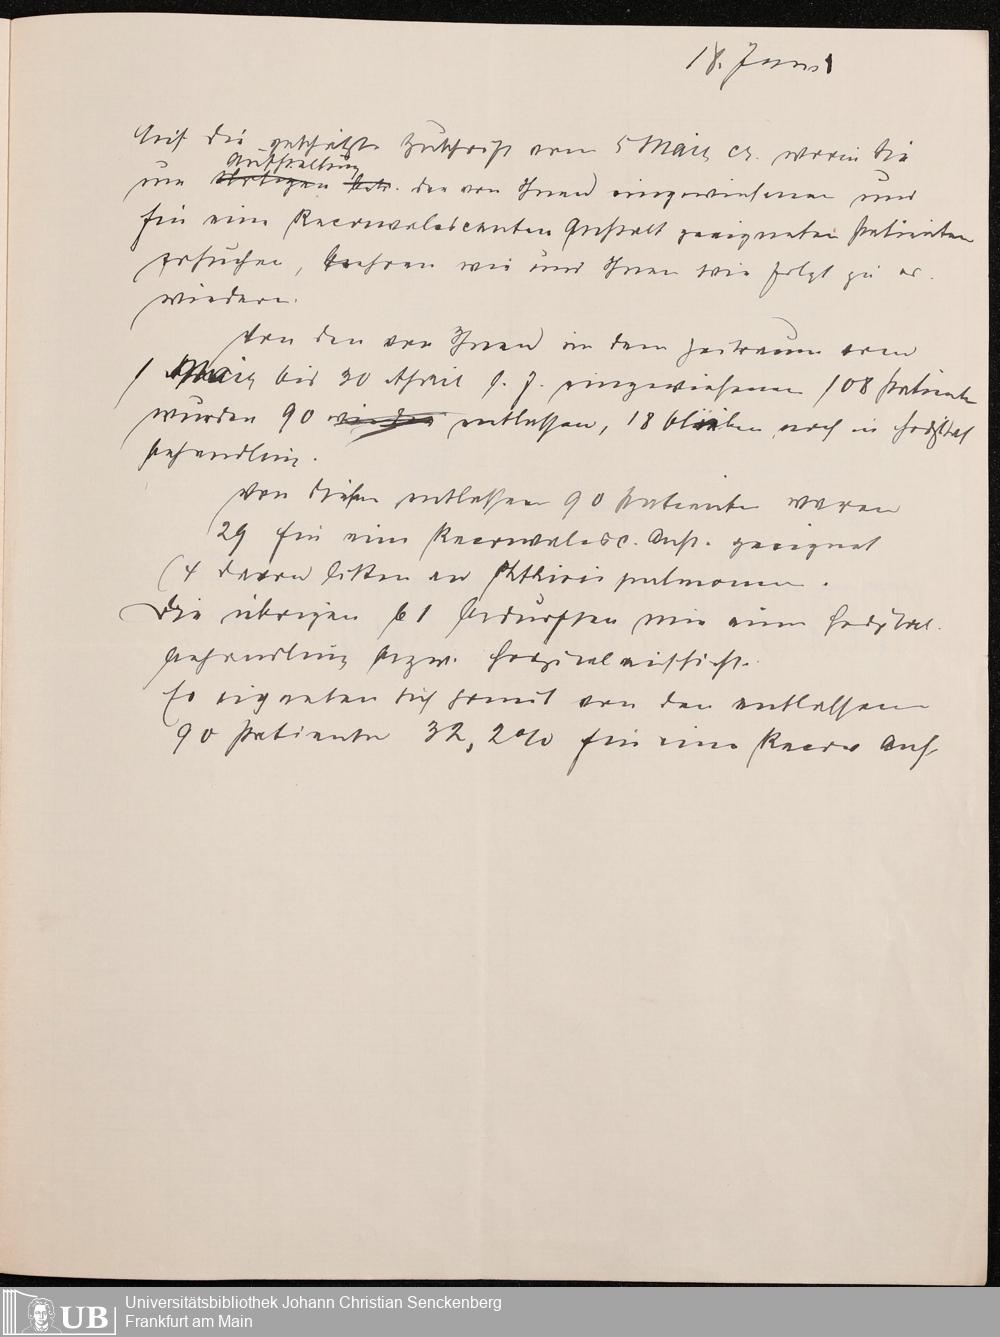 18. Juni
Auf die geschätzte Zuschrift vom 5 März cr. worin Sie
Aufstellung
um der von Ihnen eingewiesenen und
für eine Reconvalescenten Anstalt geeigneten Patienten
ersuchen, beehren wir uns Ihnen wie folgt zu er-
wiedern.
Von den von Ihnen in dem Zeitraum vom
1 bis 30 April l. J. eingewiesenen 108 Patienten
wurden 90 entlassen, 18 blieben noch in Hospital
behandlung.
Von diesen entlassenen 90 Patienten waren
29 für eine Reconvalesc. Anst. geeignet
(4 davon litten an Phthisis pulmonum.
Die übrigen 61 bedurften nur einer Hospital-
behandlung bezw. Hospitalaufsicht.
Es eigneten sich somit von den entlassenen
90 Patienten 32,2% für eine Reconv Anst.
Universitätsbibliothek Johann Christian Senckenberg
Frankfurt am Main
UB